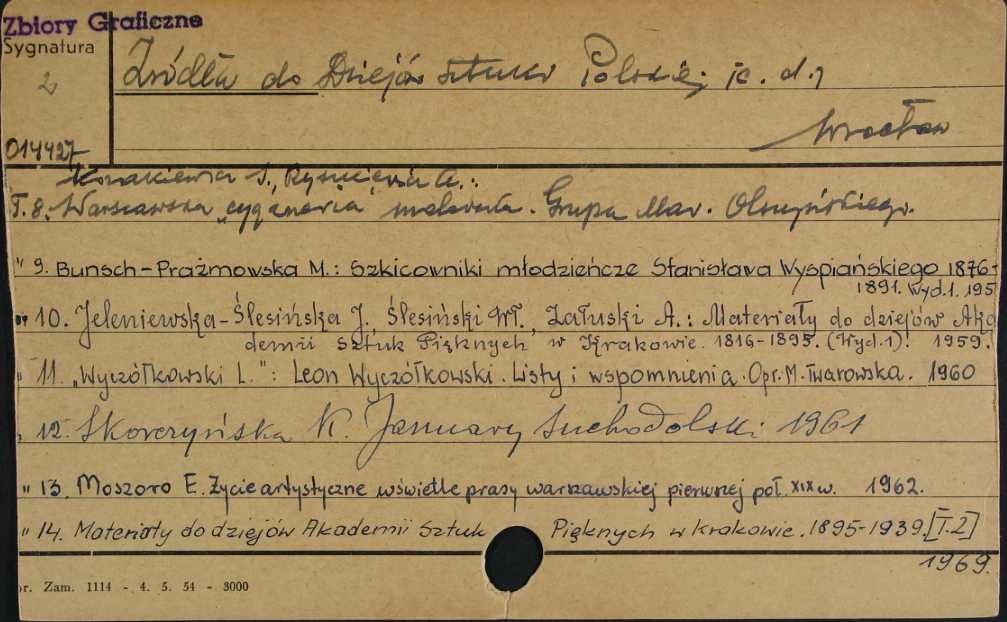 Zbiory Graficzne
Sygnatura
2
014427
Źródła do Dziejów Sztuki Polskiej /c. d./
Wrocław
Kozakiewicz S., Ryszkiewicz A.:
T. 8. Warszawska „cyganeria” malarska. Grupa Mar. Olszyńskiego.
" 9. Bunsch-Prażmowska M.: Szkicowniki młodzieńcze Stanisława Wyspiańskiego 1876-
1891. Wyd. 1. 195
" 10. Jeleniewska-Ślesińska J., Ślesiński Wł., Załuski A.: Materiały do dziejów Aka
demii Sztuk Pięknych w Krakowie. 1816-1895. (Wyd. 1)! 1959.
" 11. „Wyczółkowski L.": Leon Wyczółkowski. Listy i wspomnienia. Opr. M. Twarowska. 1960
" 12. Skorczyńska K. January Suchodolski 1961
" 13. Moszoro E. Życie artystyczne w świetle prasy warszawskiej pierwszej poł. XIX w. 1962.
" 14. Materiały do dziejów Akademii Sztuk Pięknych w Krakowie. 1895-1939. [T. 2]
1969.
r. Zam. 1114 - 4. 5. 54 - 3000